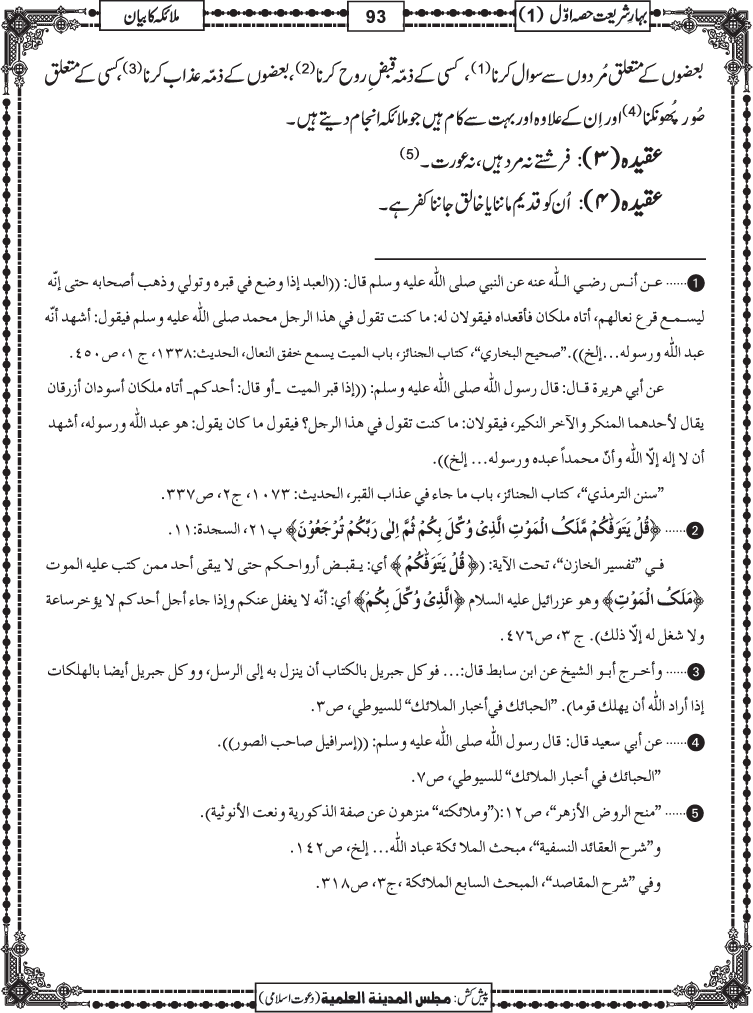 بہارِ شریعت حصہ اوّل (1)
93
ملائکہ کا بیان
بعضوں کے متعلق مُردوں سے سوال کرنا(1)، کسی کے ذمّہ قبضِ روح کرنا(2)، بعضوں کے ذمّہ عذاب کرنا(3)، کسی کے متعلق
صُور پھُونکنا(4) اور اِن کے علاوہ اور بہت سے کام ہیں جو ملائکہ انجام دیتے ہیں۔
عقیدہ (۳): فرشتے نہ مرد ہیں، نہ عورت۔(5)
عقیدہ (۴): اُن کو قدیم ماننا یا خالق جاننا کفر ہے۔
1 ...... عن أنس رضي اللّٰه عنه عن النبي صلى اللّٰه عليه وسلم قال: ((العبد إذا وضع في قبره وتولي وذهب أصحابه حتى إنّه
ليسمع قرع نعالهم، أتاه ملكان فأقعداه فيقولان له: ما كنت تقول في هذا الرجل محمد صلى اللّٰه عليه وسلم فيقول: أشهد أنّه
عبد اللّٰه ورسوله...إلخ)). ”صحيح البخاري“، كتاب الجنائز، باب الميت يسمع خفق النعال، الحديث:۱۳۳۸، ج۱، ص۴۵۰.
عن أبي هريرة قال: قال رسول اللّٰه صلى اللّٰه عليه وسلم: ((إذا قبر الميت ـأو قال: أحدكمـ أتاه ملكان أسودان أزرقان
يقال لأحدهما المنكر والآخر النكير، فيقولان: ما كنت تقول في هذا الرجل؟ فيقول ما كان يقول: هو عبد اللّٰه ورسوله، أشهد
أن لا إله إلّا اللّٰه وأنّ محمداً عبده ورسوله... إلخ)).
”سنن الترمذي“، كتاب الجنائز، باب ما جاء في عذاب القبر، الحديث: ۱۰۷۳، ج۲، ص۳۳۷.
2 ...... ﴿قُلْ يَتَوَفّٰكُمْ مَّلَكُ الْمَوْتِ الَّذِىْ وُكِّلَ بِكُمْ ثُمَّ اِلٰى رَبِّكُمْ تُرْجَعُوْنَ﴾ پ۲۱، السجدة:۱۱.
في ”تفسير الخازن“، تحت الآية: (﴿قُلْ يَتَوَفّٰكُمْ﴾ أي: يقبض أرواحكم حتى لا يبقى أحد ممن كتب عليه الموت
﴿مَلَكُ الْمَوْتِ﴾ وهو عزرائيل عليه السلام ﴿الَّذِىْ وُكِّلَ بِكُمْ﴾ أي: أنّه لا يغفل عنكم وإذا جاء أجل أحدكم لا يؤخر ساعة
ولا شغل له إلّا ذلك). ج۳، ص۴۷۶.
3 ...... وأخرج أبو الشيخ عن ابن سابط قال:... فوكل جبريل بالكتاب أن ينزل به إلى الرسل، ووكل جبريل أيضا بالهلكات
إذا أراد اللّٰه أن يهلك قوما). ”الحبائك في أخبار الملائك“ للسيوطي، ص۳.
4 ...... عن أبي سعيد قال: قال رسول اللّٰه صلى اللّٰه عليه وسلم: ((إسرافيل صاحب الصور)).
”الحبائك في أخبار الملائك“ للسيوطي، ص۷.
5 ...... ”منح الروض الأزهر“، ص۱۲:(”وملائكته“ منزهون عن صفة الذكورية ونعت الأنوثية).
و”شرح العقائد النسفية“، مبحث الملا ئكة عباد اللّٰه... إلخ، ص۱۴۲.
وفي ”شرح المقاصد“، المبحث السابع الملائكة، ج۳، ص۳۱۸.
پیش کش: مجلس المدينة العلمية (دعوتِ اسلامی)